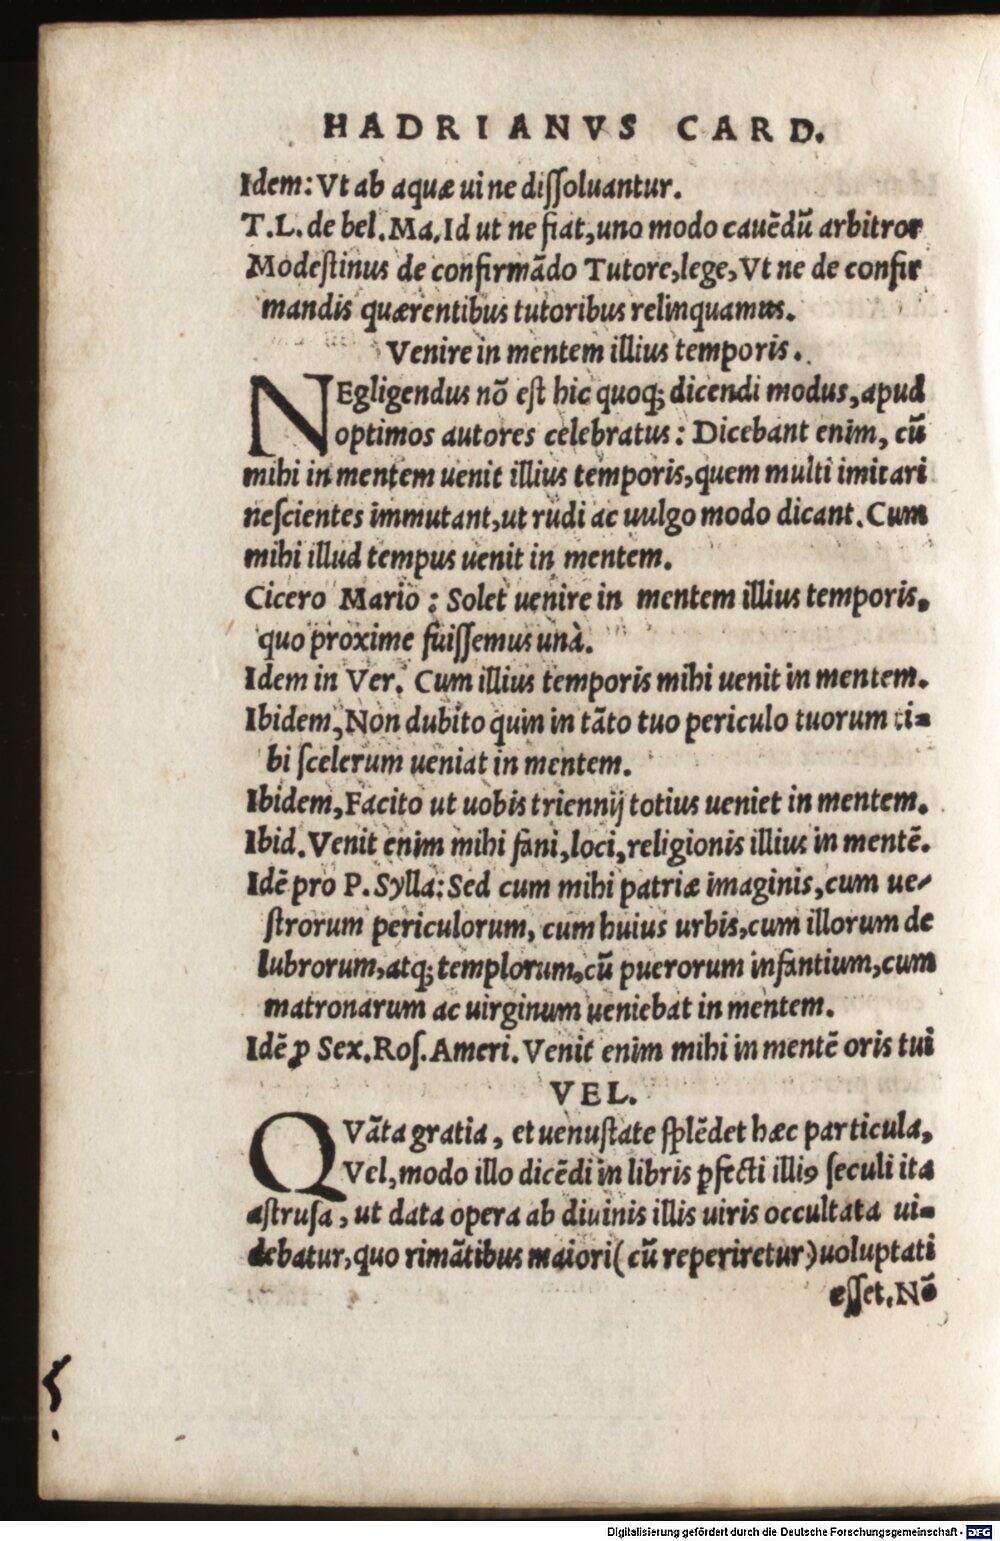 HADRIANVS CARD.
Idem: Vt ab aquæ ui ne dissoluantur.
T.L. de bel. Ma. Id ut ne fiat, uno modo cauẽdũ arbitror
Modestinus de confirmãdo Tutore, lege, Vt ne de confir
mandis quærentibus tutoribus relinquamus.
Venire in mentem illius temporis.
NEgligendus nõ est hic quoq; dicendi modus, apud
optimos autores celebratus: Dicebant enim, cũ
mihi in mentem uenit illius temporis, quem multi imitari
nescientes immutant, ut rudi ac uulgo modo dicant. Cum
mihi illud tempus uenit in mentem.
Cicero Mario: Solet uenire in mentem illius temporis,
quo proxime fuissemus unà.
Idem in Ver. Cum illius temporis mihi uenit in mentem.
Ibidem, Non dubito quin in tãto tuo periculo tuorum ti-
bi scelerum ueniat in mentem.
Ibidem, Facito ut uobis triennij totius ueniet in mentem.
Ibid. Venit enim mihi fani, loci, religionis illius in mentẽ.
Idẽ pro P. Sylla: Sed cum mihi patriæ imaginis, cum ue-
strorum periculorum, cum huius urbis, cum illorum de
lubrorum, atq; templorum, cũ puerorum infantium, cum
matronarum ac uirginum ueniebat in mentem.
Idẽ ꝓ Sex. Ros. Ameri. Venit enim mihi in mentẽ oris tui
VEL.
QVãta gratia, et uenustate splẽdet hæc particula,
Vel, modo illo dicẽdi in libris ꝑfecti illiꝰ seculi ita
astrusa, ut data opera ab diuinis illis uiris occultata ui-
debatur, quo rimãtibus maiori (cũ reperiretur) uoluptati
esset. Nõ
Digitalisierung gefördert durch die Deutsche Forschungsgemeinschaft - DFG